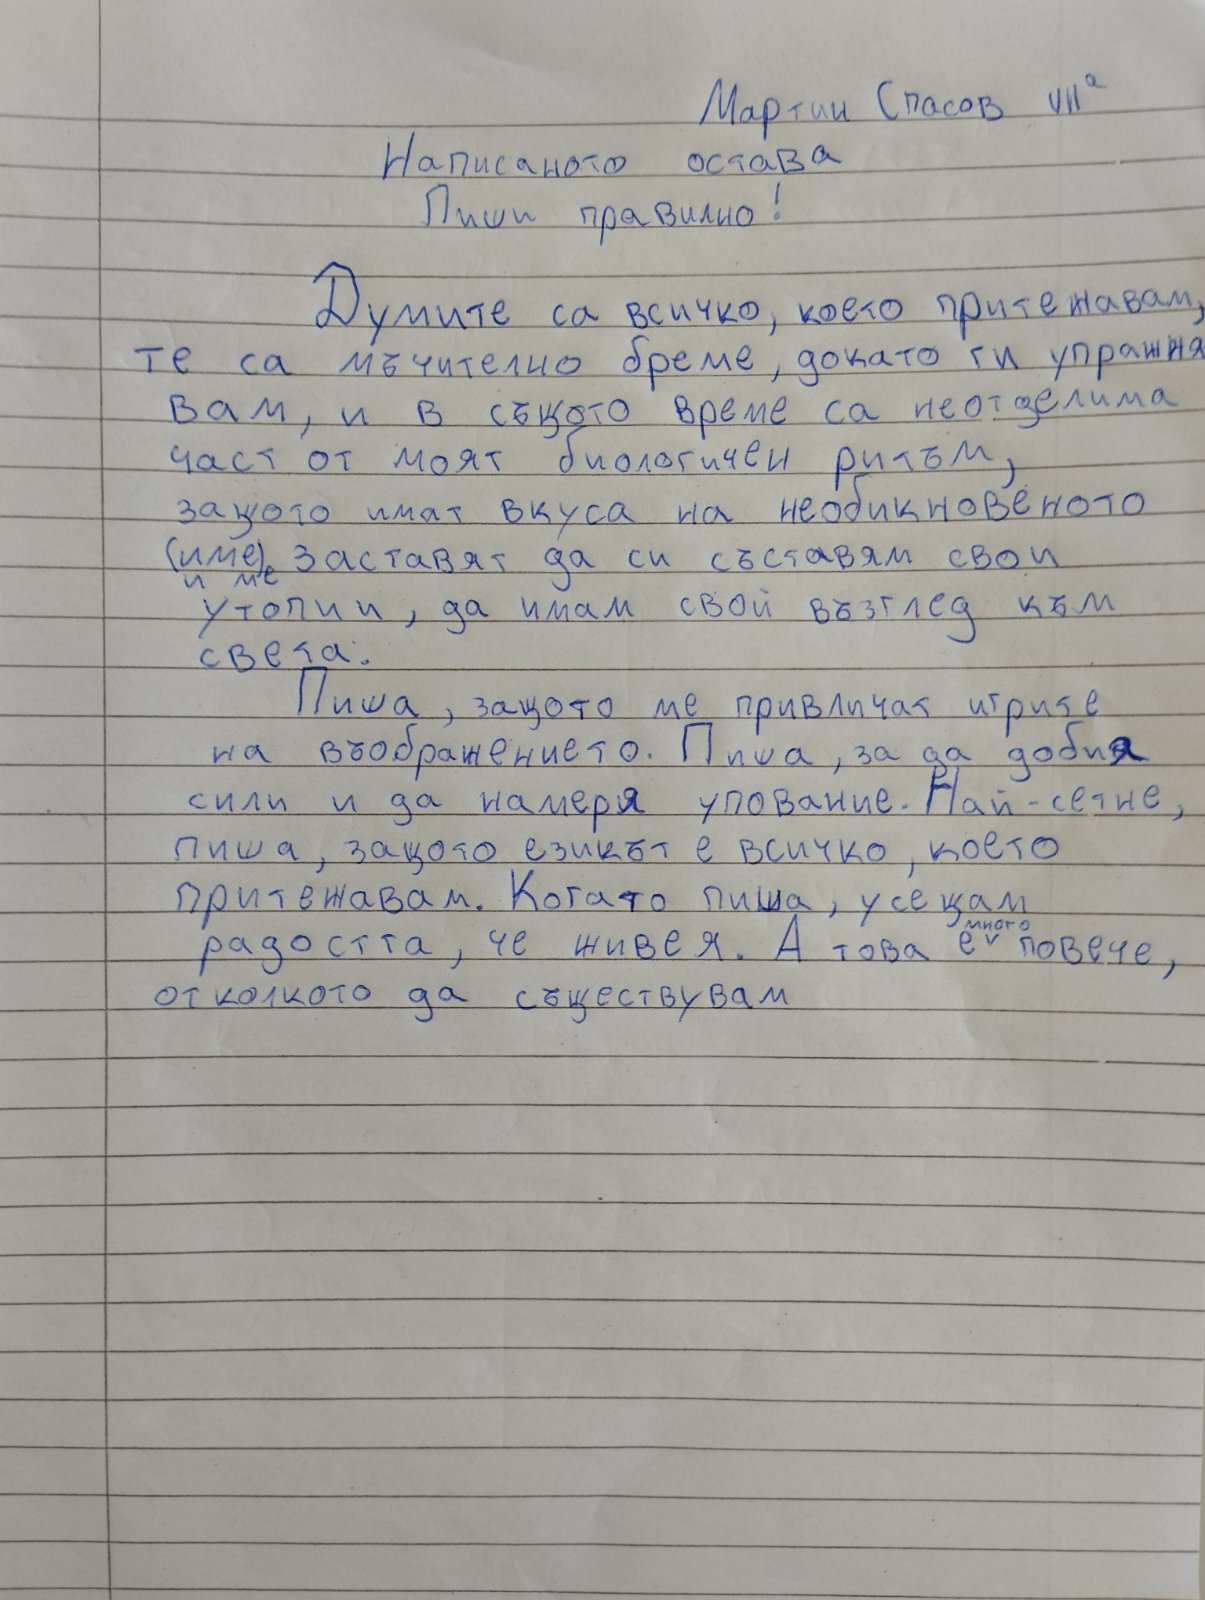 Мартин Спасов VIIа
Написаното остава
Пиши правилно!
Думите са всичко, което притежавам,
те са мъчително бреме, докато ги упражня
вам, и в същото време са неотделима
част от моят биологичен ритъм,
защото имат вкуса на необикновеното
(име), заставят да си съставям свои
и ме
утопии, да имам свой възглед към
света.
Пиша, защото ме привличат игрите
на въображението. Пиша, за да добия
сили и да намеря упование. Най-сетне,
пиша, защото езикът е всичко, което
притежавам. Когато пиша, усещам
много
радостта, че живея. А това е повече,
отколкото да съществувам